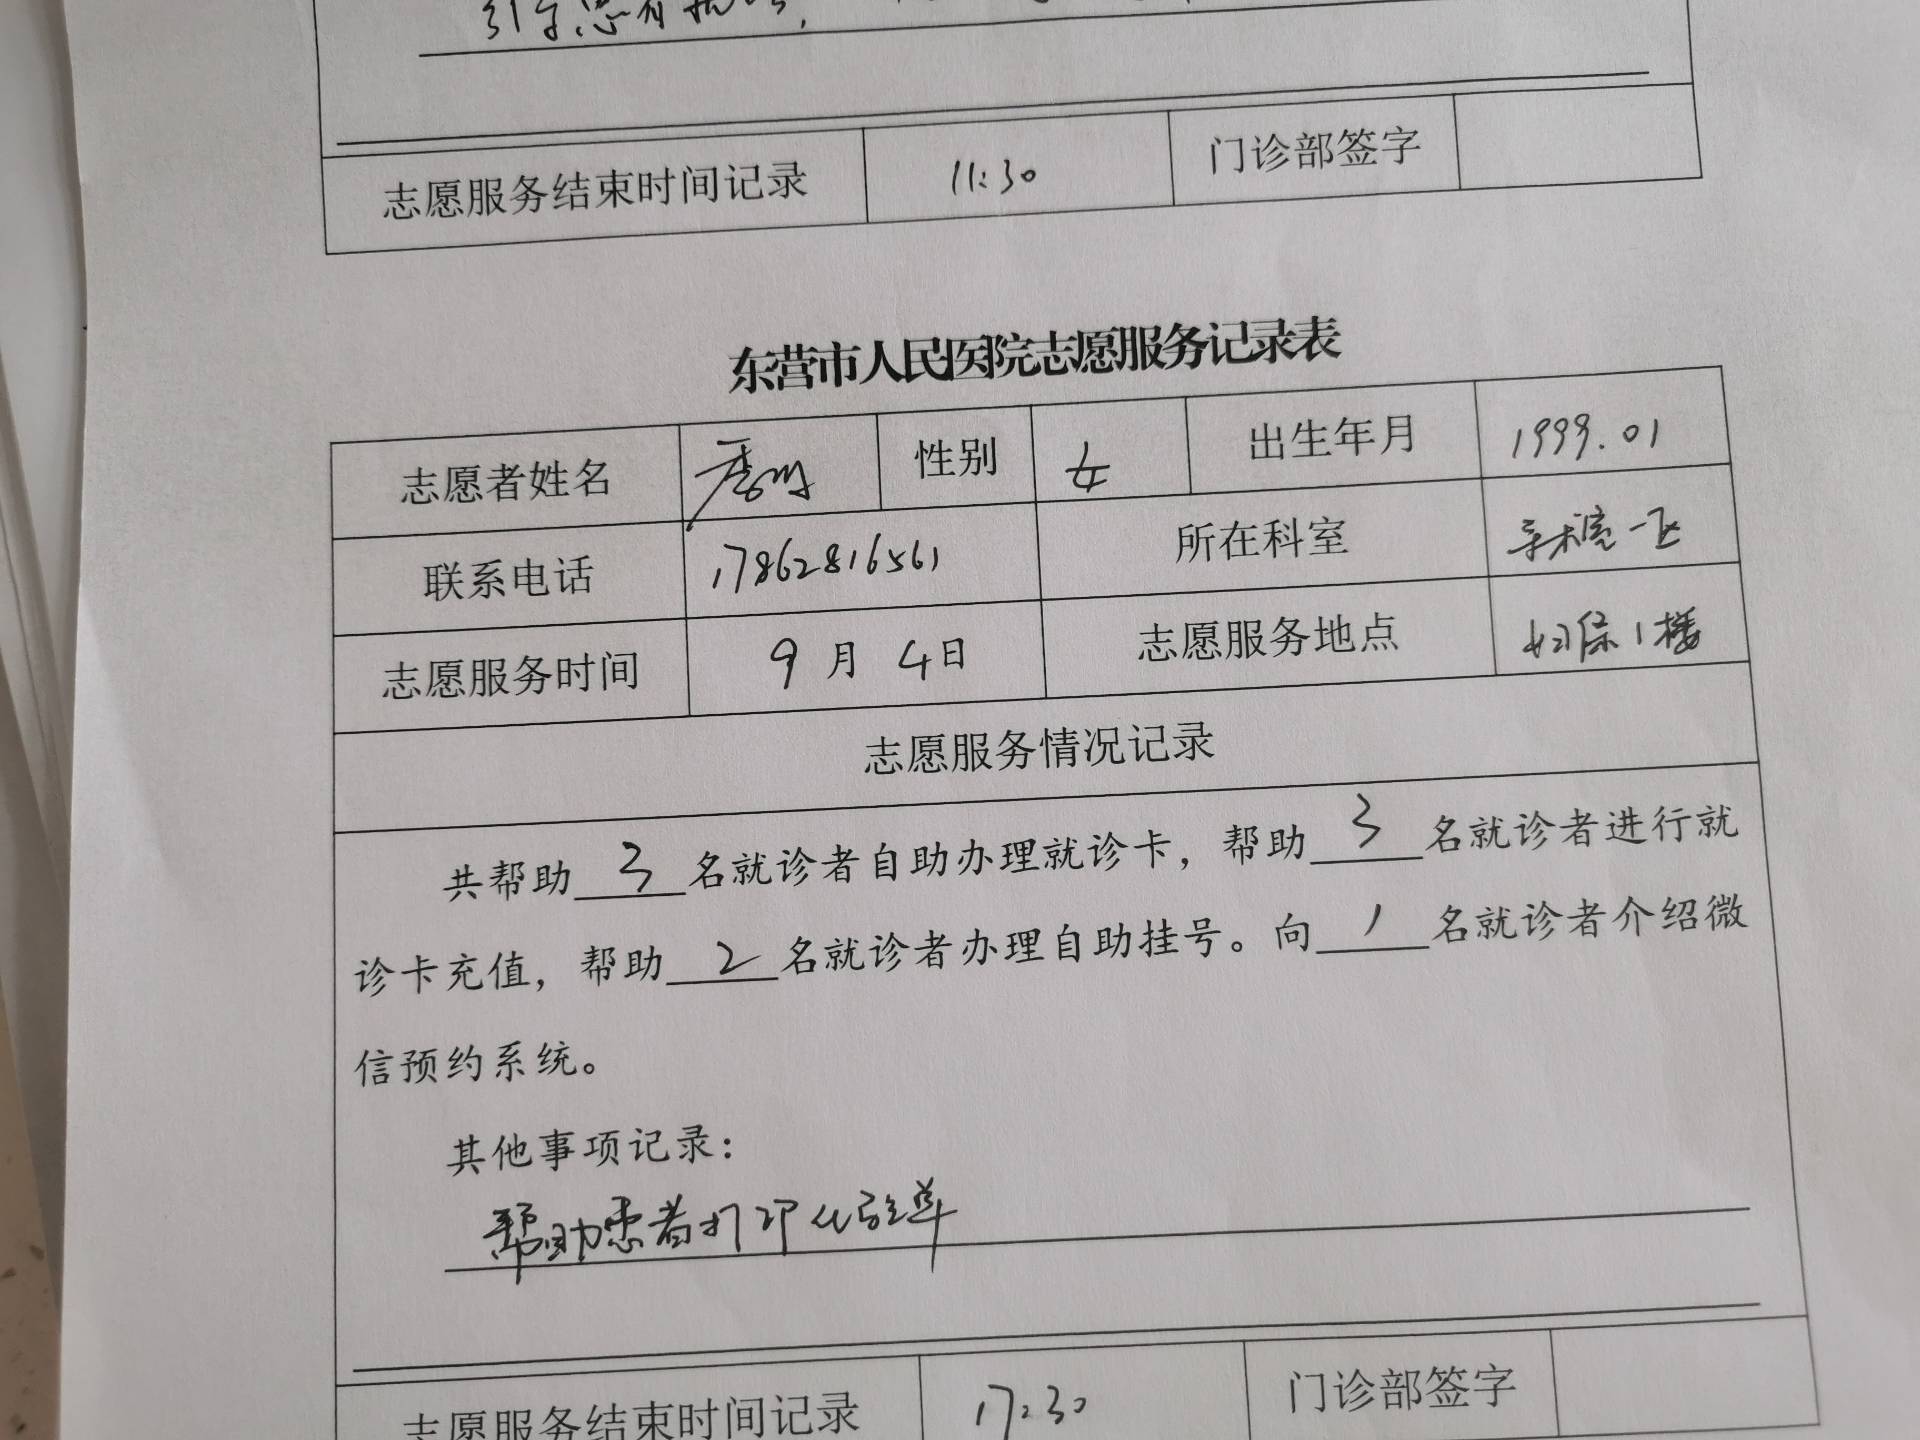 引导患者
志愿服务结束时间记录 11:30 门诊部签字
东营市人民医院志愿服务记录表
志愿者姓名 性别 女 出生年月 1999.01
联系电话 17862816561 所在科室
志愿服务时间 9月4日 志愿服务地点 妇保1楼
志愿服务情况记录
共帮助 3 名就诊者自助办理就诊卡，帮助 3 名就诊者进行就
诊卡充值，帮助 2 名就诊者办理自助挂号。向 1 名就诊者介绍微
信预约系统。
其他事项记录：
帮助患者打印化验单
志愿服务结束时间记录 17:30 门诊部签字